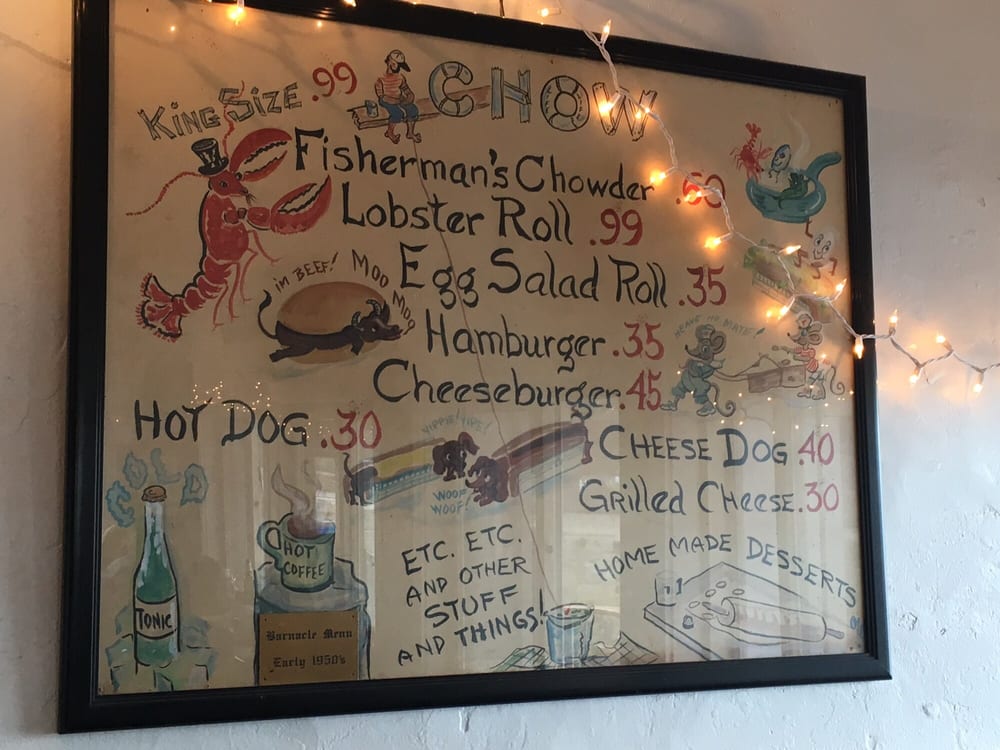 CHOW
KING SIZE .99
Fisherman's Chowder .60
Lobster Roll .99
Egg Salad Roll .35
im BEEF! MOO MOO MOO
Hamburger .35
HEAVE HO MATE!
Cheeseburger .45
HOT DOG .30
YIPPIE! YIPE!
WOOF
WOOF!
CHEESE DOG .40
Grilled Cheese .30
COLD
TONIC
HOT
COFFEE
Barnacle Menu
Early 1950's
ETC. ETC.
AND OTHER
STUFF
AND THINGS!
HOME MADE DESSERTS